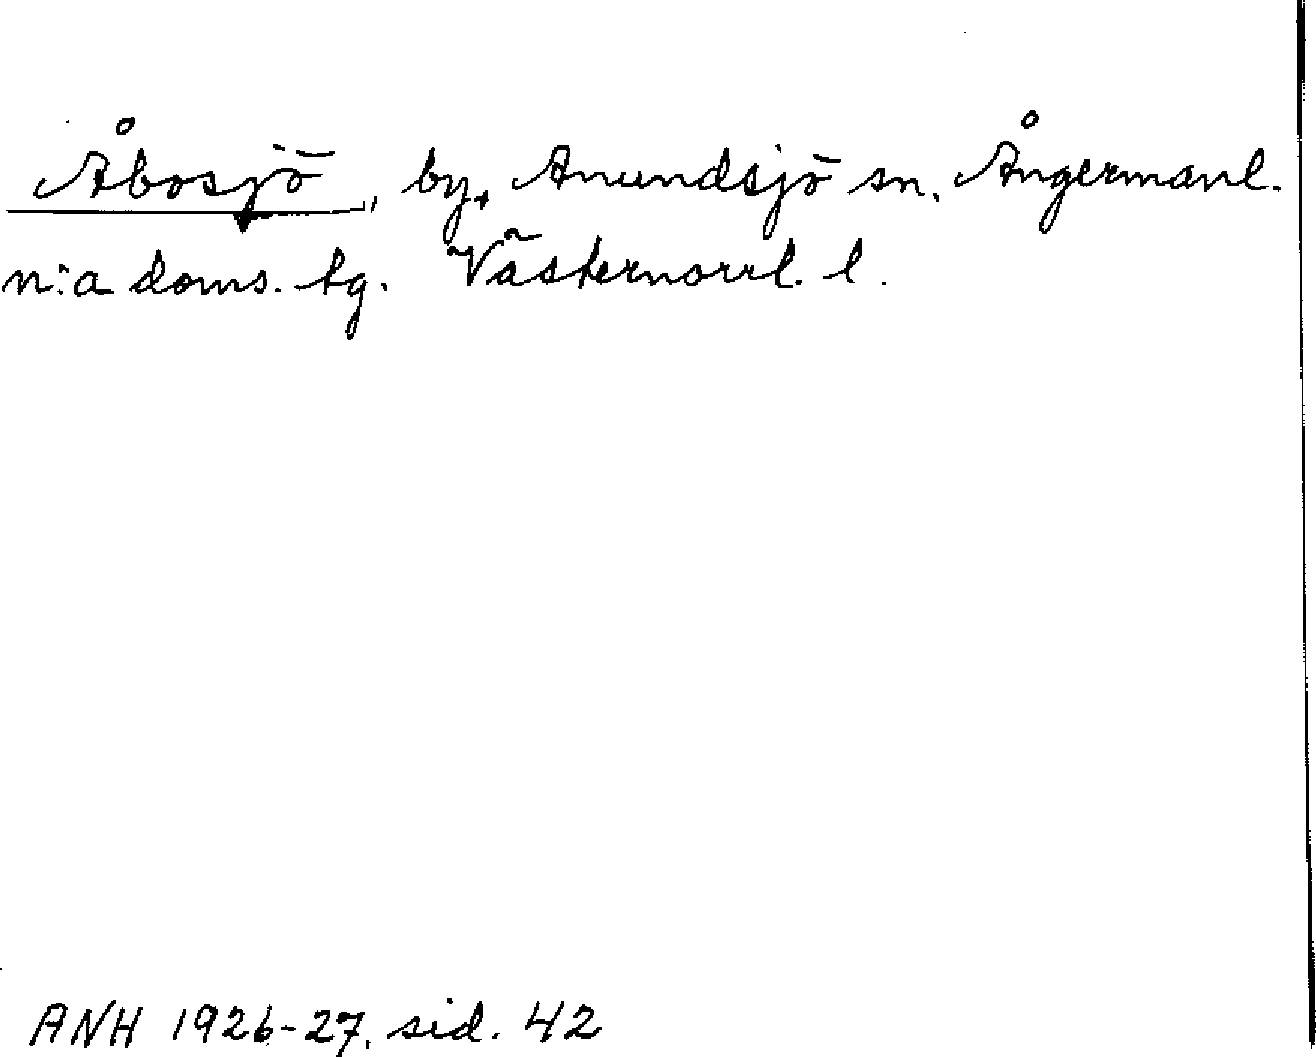 Åbosjö, by, Anundsjö sn. Ångermanl.
n:a doms. tg. Västernorrl. l.
ANH 1926-27, sid. 42